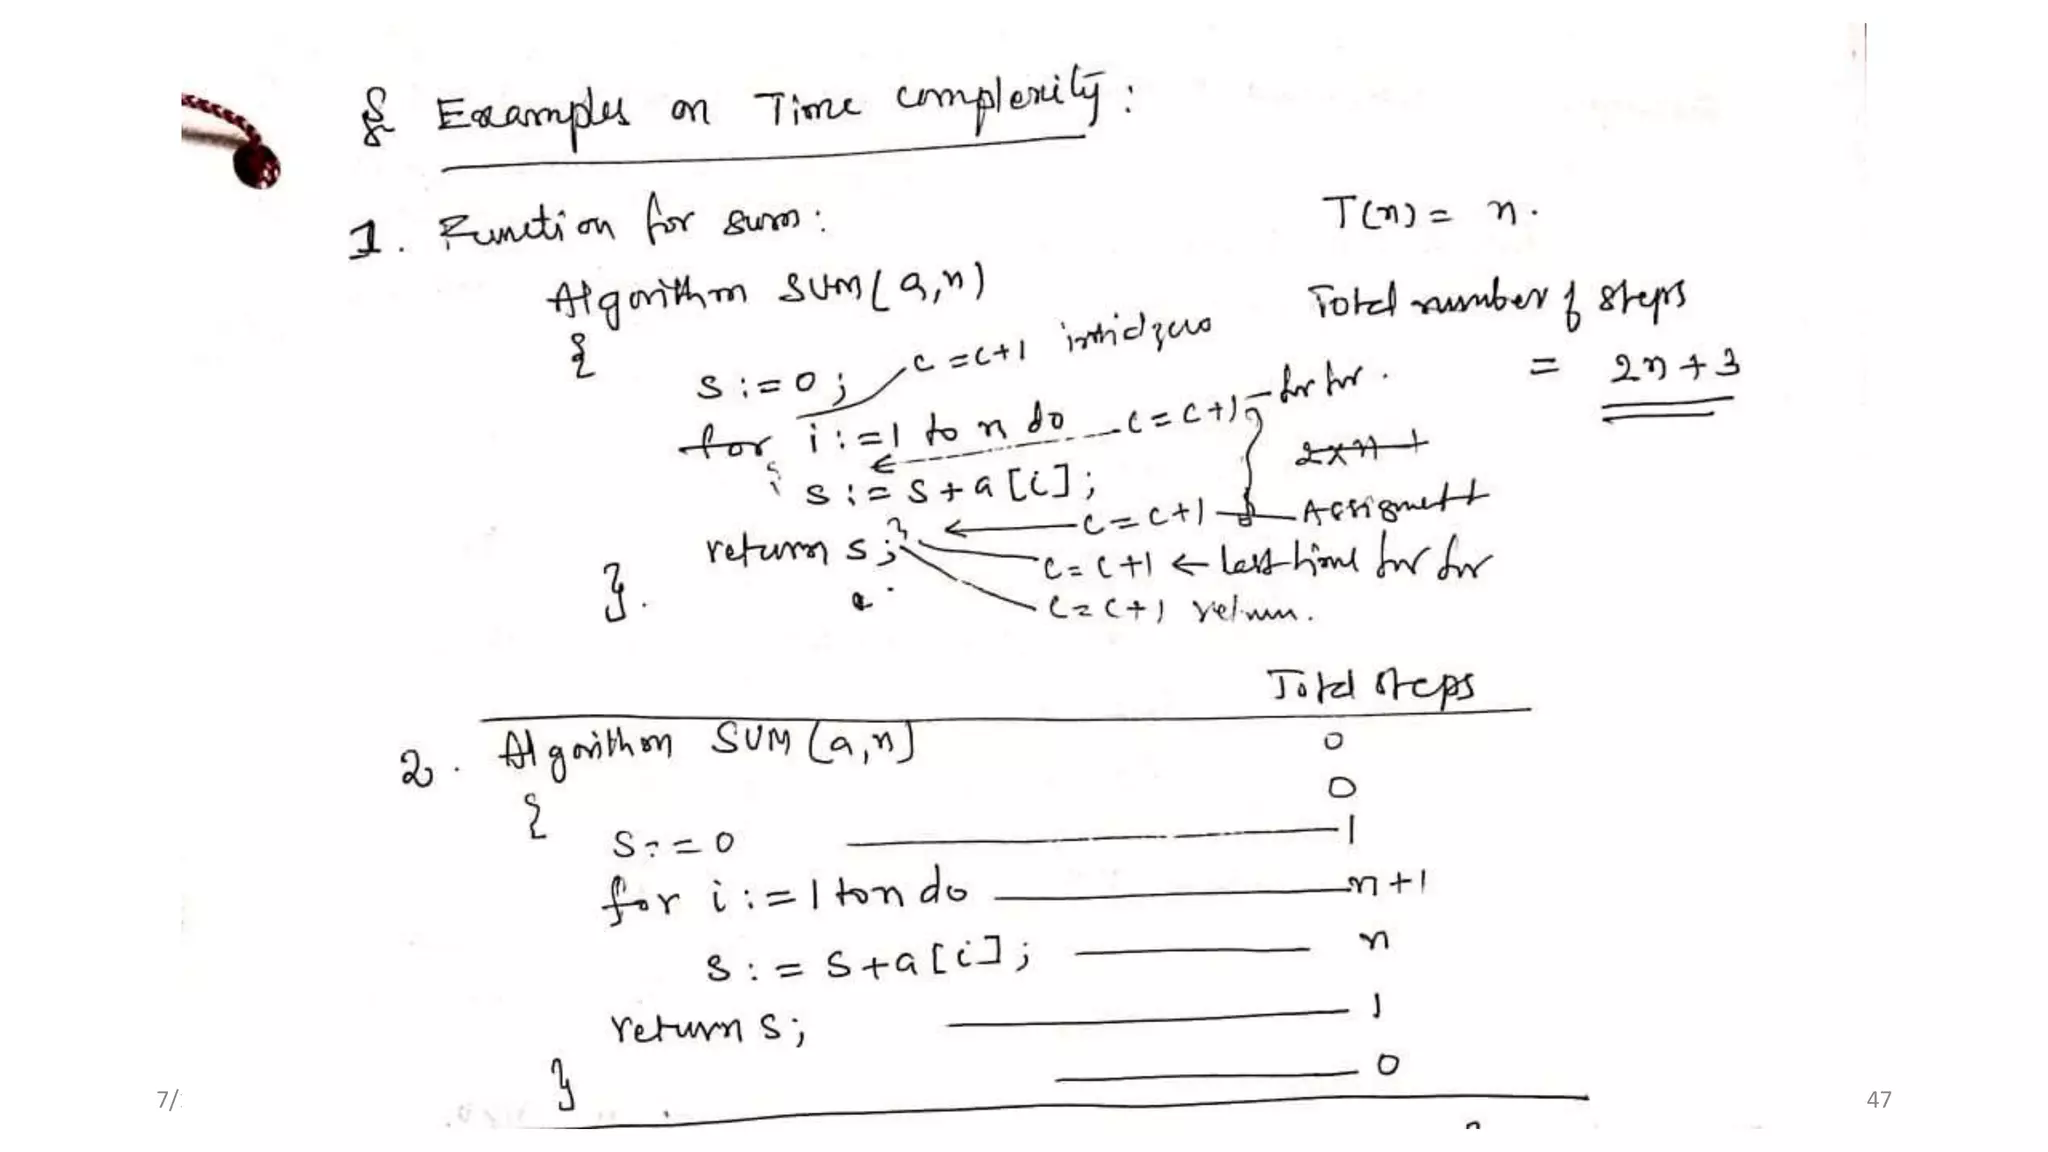 § Examples on Time complexity:
1. Function for sum:
T(n) = n.
Algorithm SUM(a,n)
Total number of steps
{
s := 0; c = c+1 initial zero
= 2n + 3
for i := 1 to n do c = c+1 for for.
{ s := s + a[i];
2xn +
c = c+1 Assignment
return s; }
c = c+1 ← last time for for
}.
c = c+1 return.
Total steps
2. Algorithm SUM(a,n) 0
{ 0
s := 0 1
for i := 1 to n do n+1
s := s+a[i]; n
return s; 1
} 0
7/
47